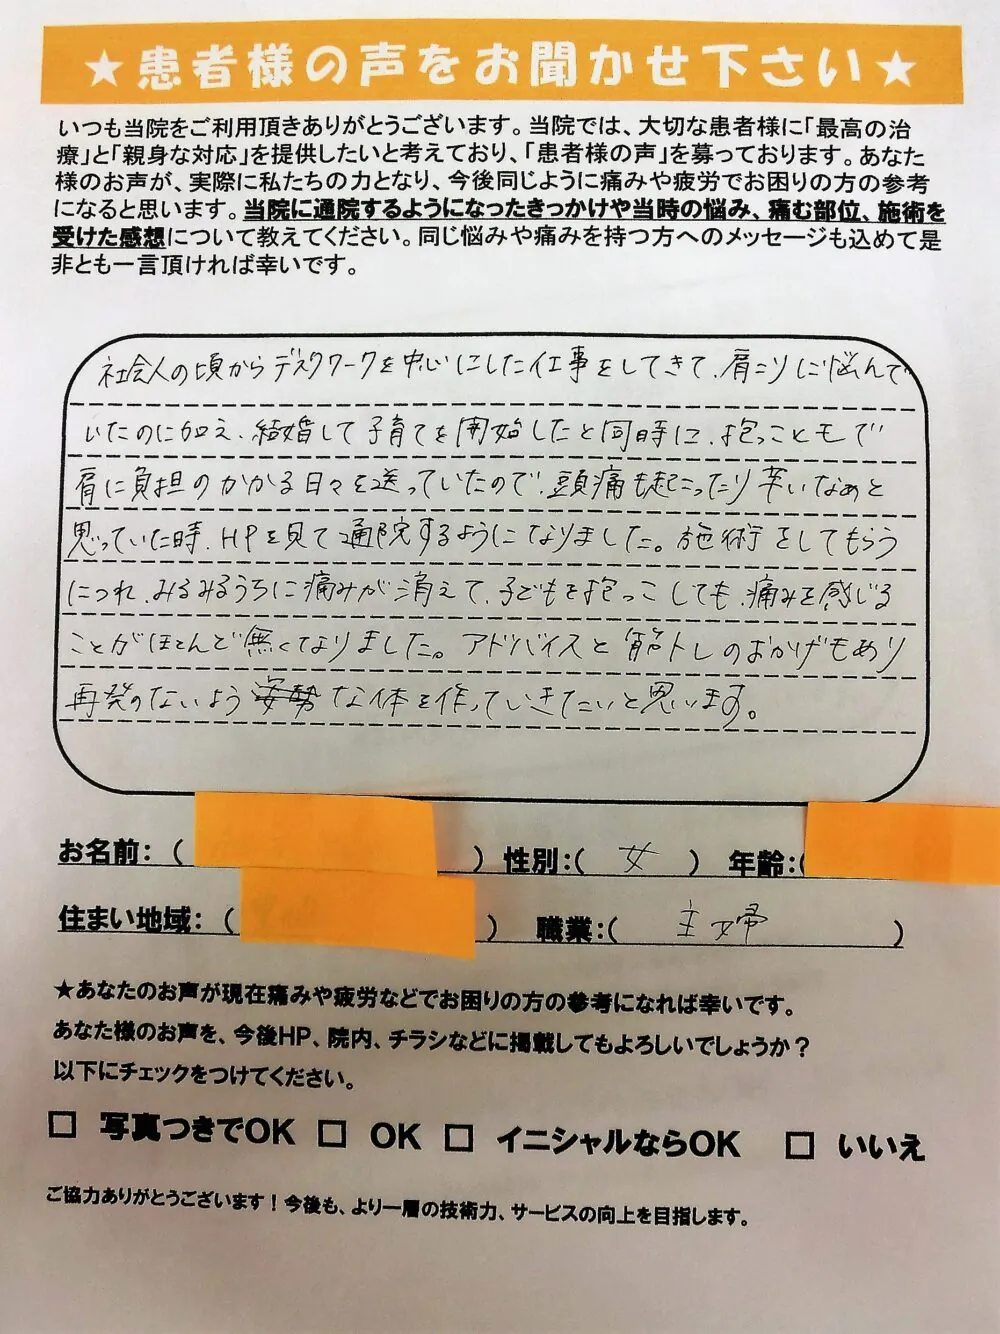 ★患者様の声をお聞かせ下さい★
いつも当院をご利用頂きありがとうございます。当院では、大切な患者様に「最高の治
療」と「親身な対応」を提供したいと考えており、「患者様の声」を募っております。あなた
様のお声が、実際に私たちの力となり、今後同じように痛みや疲労でお困りの方の参考
になると思います。当院に通院するようになったきっかけや当時の悩み、痛む部位、施術を
受けた感想について教えてください。同じ悩みや痛みを持つ方へのメッセージも込めて是
非とも一言頂ければ幸いです。
社会人の頃からデスクワークを中心にした仕事をしてきて、肩こりに悩んで
いたのに加え、結婚して子育てを開始したと同時に、抱っこともで
肩に負担のかかる日々を送っていたので、頭痛も起こったり辛いなぁと
思っていた時、HPを見て通院するようになりました。施術をしてもらう
につれ、みるみるうちに痛みが消えて、子どもを抱っこしても、痛みを感じる
ことがほとんど無くなりました。アドバイスと筋トレのおかげもあり
再発のないよう な体を作っていきたいと思います。
お名前：（ ） 性別：（ 女 ） 年齢：（
住まい地域：（ ） 職業：（ 主婦 ）
★あなたのお声が現在痛みや疲労などでお困りの方の参考になれば幸いです。
あなた様のお声を、今後HP、院内、チラシなどに掲載してもよろしいでしょうか？
以下にチェックをつけてください。
□ 写真つきでOK □ OK □ イニシャルならOK □ いいえ
ご協力ありがとうございます！今後も、より一層の技術力、サービスの向上を目指します。